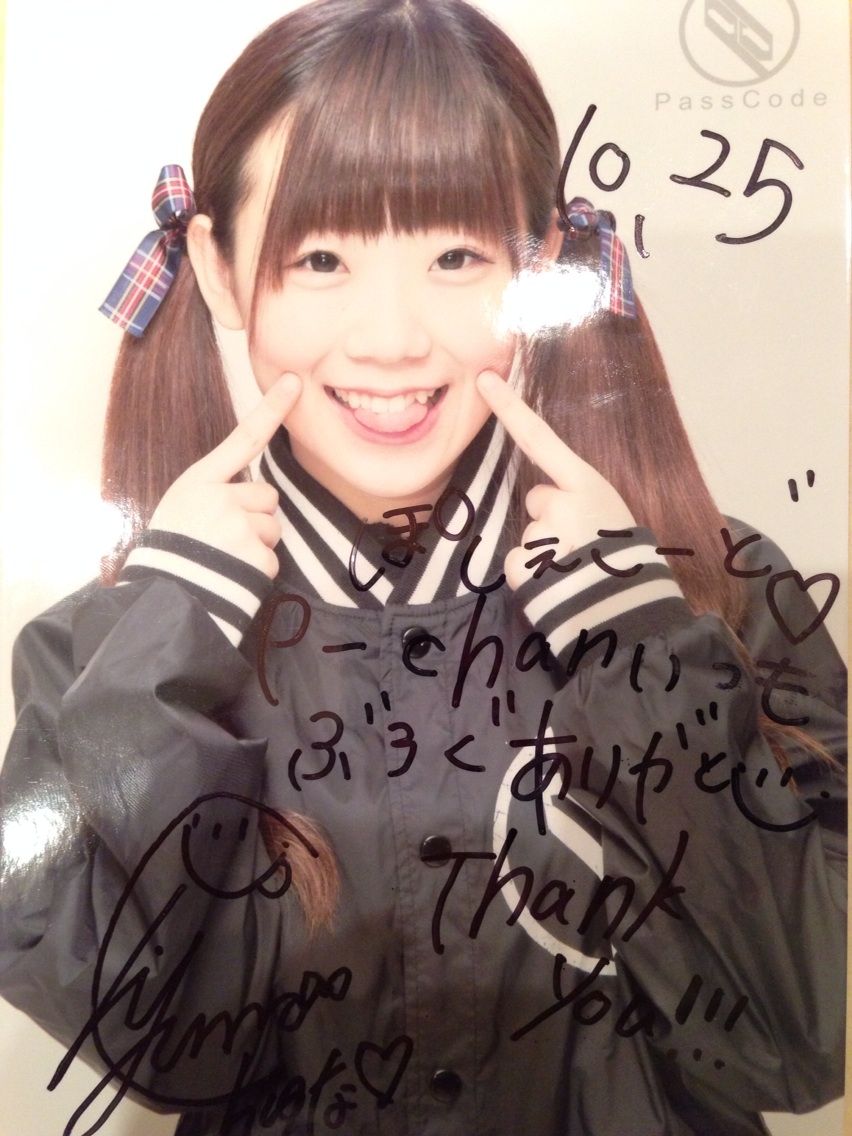 PassCode
10, 25
ぽしぇこーど♡
P-chanいつも
ぶろぐありがと
Thank
You!!!